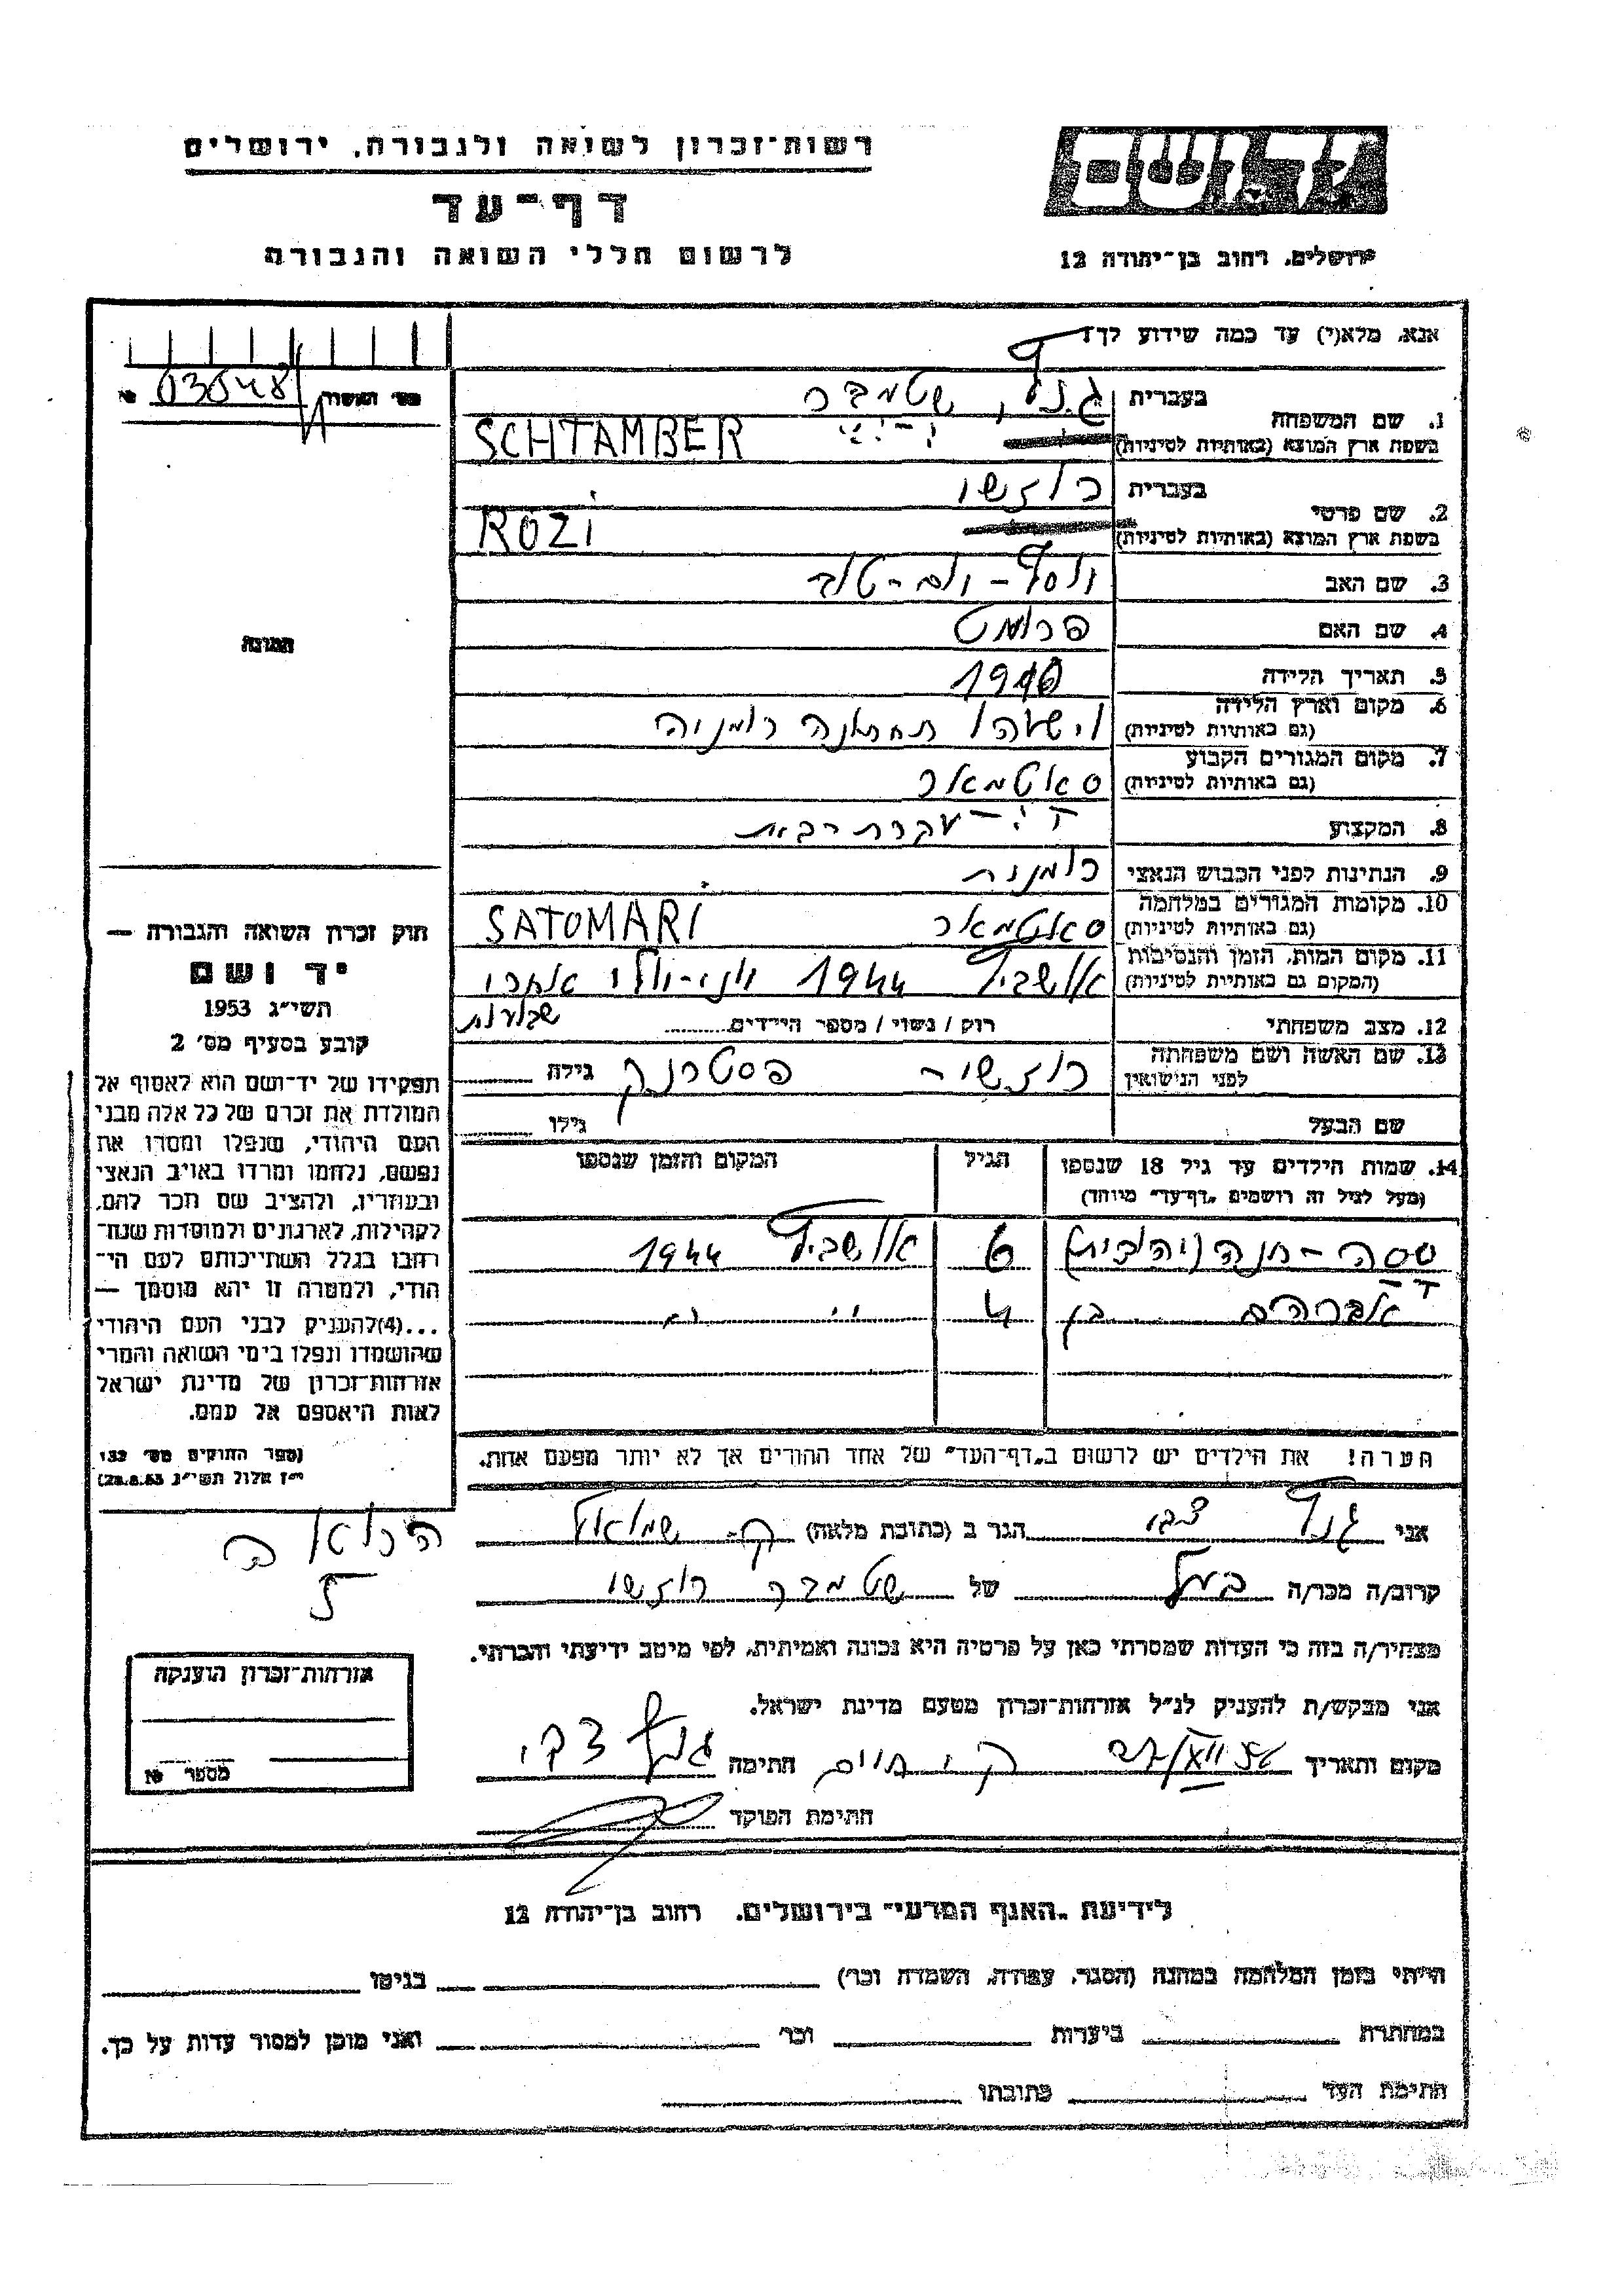 רשות־זכרון לשואה ולגבורה, ירושלים
דף־עד
לרשום חללי השואה והגבורה
ירושלים, רחוב בן־יהודה 12
אנא, מלא(י) עד כמה שידוע לך!
מס' האשרה № 03548
1. שם המשפחה
בעברית שטמבר
בשפת ארץ המוצא (באותיות לטיניות) SCHTAMBER
2. שם פרטי
בעברית רוזשי
בשפת ארץ המוצא (באותיות לטיניות) ROZI
3. שם האב
4. שם האם
5. תאריך הלידה
6. מקום וארץ הלידה רומניה
(גם באותיות לטיניות)
7. מקום המגורים הקבוע סאטמאר
(גם באותיות לטיניות)
8. המקצוע עקרת בית
9. הנתינות לפני הכבוש הנאצי רומנית
10. מקומות המגורים במלחמה סאטמאר SATOMARI
(גם באותיות לטיניות)
11. מקום המות, הזמן והנסיבות אושביץ 1944
(המקום גם באותיות לטיניות)
12. מצב משפחתי רוק / נשוי / מספר הילדים
13. שם האשה ושם משפחתה לפני הנישואין רוזשי – פסטרנק גילה
שם הבעל גילו
14. שמות הילדים עד גיל 18 שנספו
(מעל לגיל זה רושמים "דף־עד" מיוחד)
הגיל
המקום והזמן שנספו
חנה 6 אושביץ 1944
אברהם בן 4 " "
הערה! את הילדים יש לרשום ב"דף־העד" של אחד ההורים אך לא יותר מפעם אחת.
התמונה
חוק זכרון השואה והגבורה —
יד ושם
תשי״ג 1953
קובע בסעיף מס' 2
תפקידו של יד־ושם הוא לאסוף אל
המולדת את זכרם של כל אלה מבני
העם היהודי, שנפלו ומסרו את
נפשם, נלחמו ומרדו באויב הנאצי
ובעוזריו, ולהציב שם וזכר להם,
לקהילות, לארגונים ולמוסדות שנח־
רבו בגלל השתייכותם לעם הי־
הודי, ולמטרה זו יהא מוסמך —
...(4)להעניק לבני העם היהודי
שהושמדו ונפלו בימי השואה והמרי
אזרחות־זכרון של מדינת ישראל
לאות היאספם אל עמם.
(ספר החוקים מס' 132
י״ז אלול תשי״ג 28.8.53)
אני גנץ צבי הגר ב (כתובת מלאה) ק. שמואל
קרוב/ה מכר/ה בעל של שטמבר רוזשי
מצהיר/ה בזה כי העדות שמסרתי כאן על פרטיה היא נכונה ואמיתית, לפי מיטב ידיעתי והכרתי.
אני מבקש/ת להעניק לנ״ל אזרחות־זכרון מטעם מדינת ישראל.
מקום ותאריך ק. חיים חתימה גנץ צבי
חתימת הפוקד
אזרחות־זכרון הוענקה
מספר №
לידיעת "האגף המדעי" בירושלים, רחוב בן־יהודה 12
הייתי בזמן המלחמה במחנה (הסגר, עבודה, השמדה וכו') בגיטו
במחתרת ביערות וכו' ואני מוכן למסור עדות על כך.
חתימת העד כתובתו